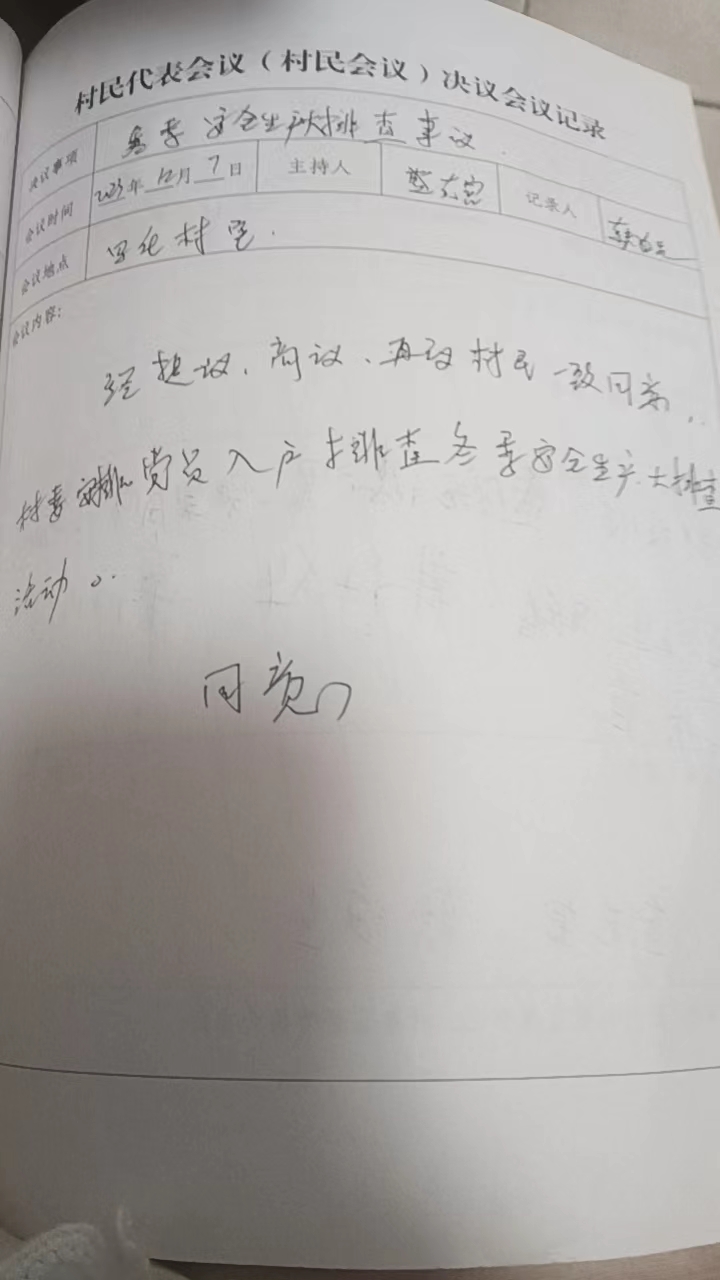 村民代表会议（村民会议）决议会议记录
决议事项 冬季安全生产大排查事议
会议时间 2023年12月7日 主持人 记录人
会议地点 村室.
会议内容:
经提议、商议、再议村民一致同意,
村委安排党员入户排查冬季安全生产大排查
活动。
同意